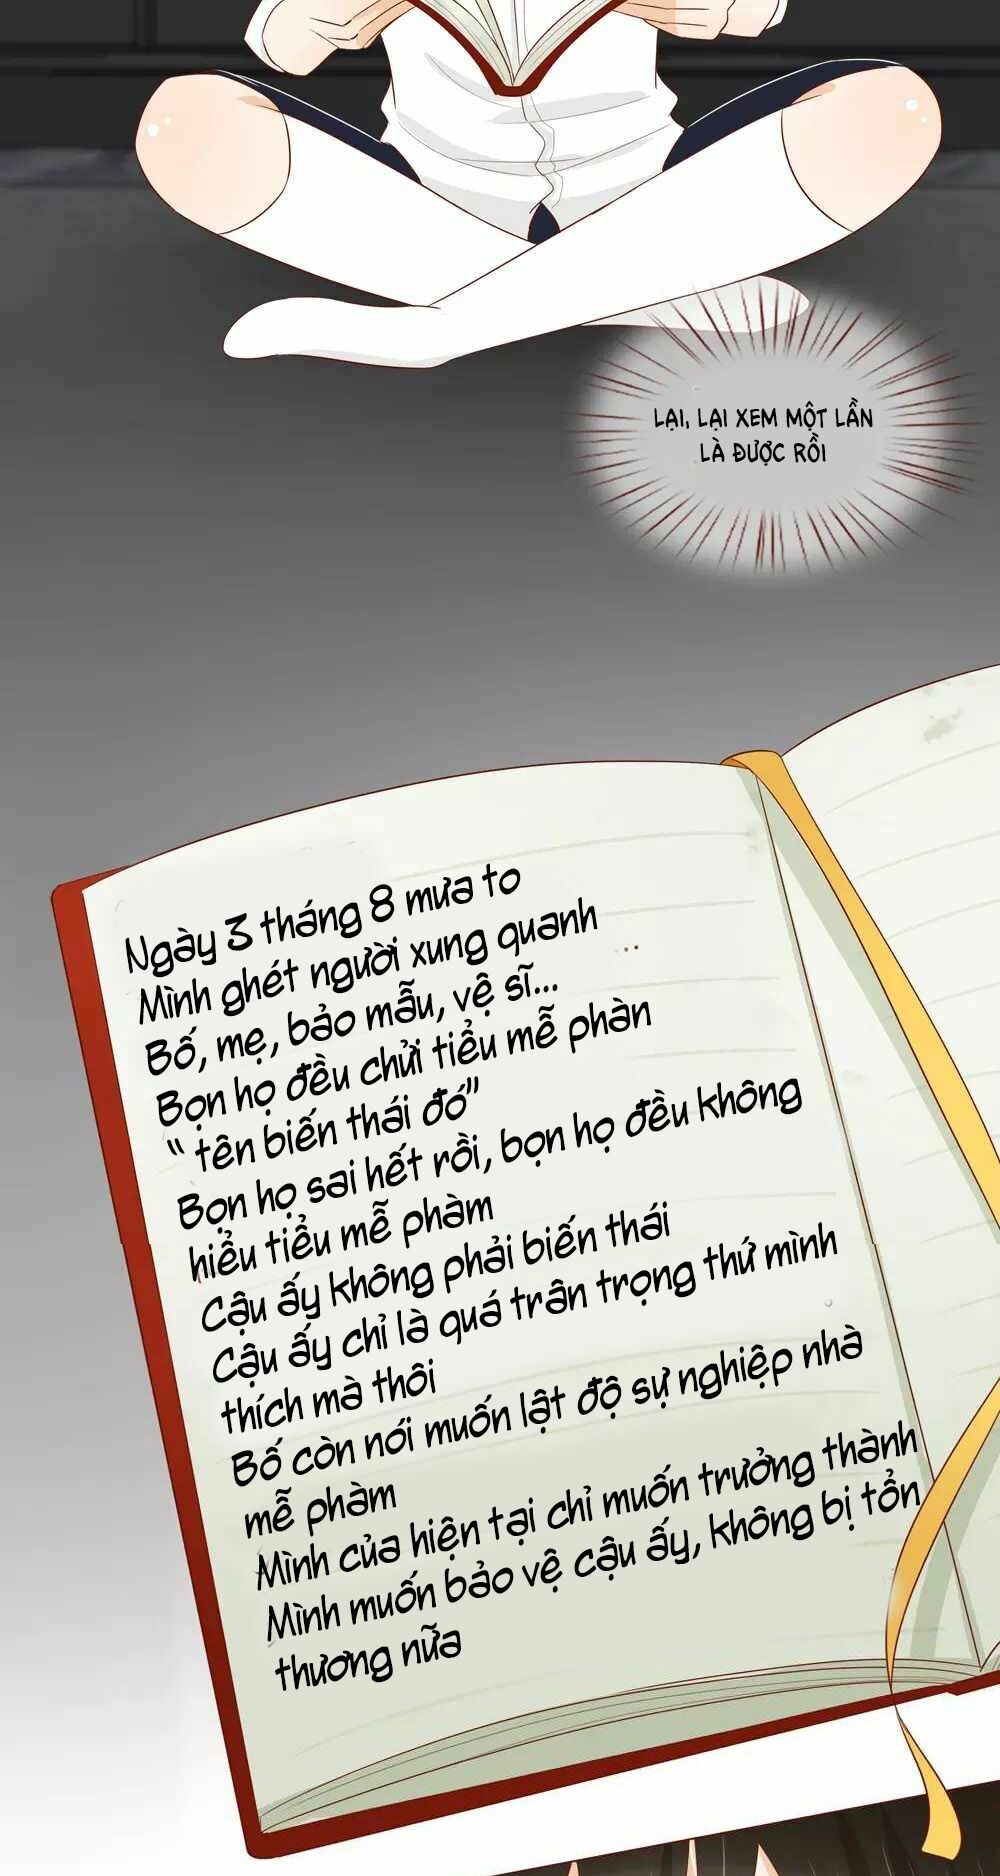 LẠI, LẠI XEM MỘT LẦN
LÀ ĐƯỢC RỒI
Ngày 3 tháng 8 mưa to
Mình ghét người xung quanh
Bố, mẹ, bảo mẫu, vệ sĩ...
Bọn họ đều chửi tiểu mễ phàn
“ tên biến thái đó”
Bọn họ sai hết rồi, bọn họ đều không
hiểu tiểu mễ phàm
Cậu ấy không phải biến thái
Cậu ấy chỉ là quá trân trọng thứ mình
thích mà thôi
Bố còn nói muốn lật độ sự nghiệp nhà
mễ phàm
Mình của hiện tại chỉ muốn trưởng thành
Mình muốn bảo vệ cậu ấy, không bị tổn
thương nữa